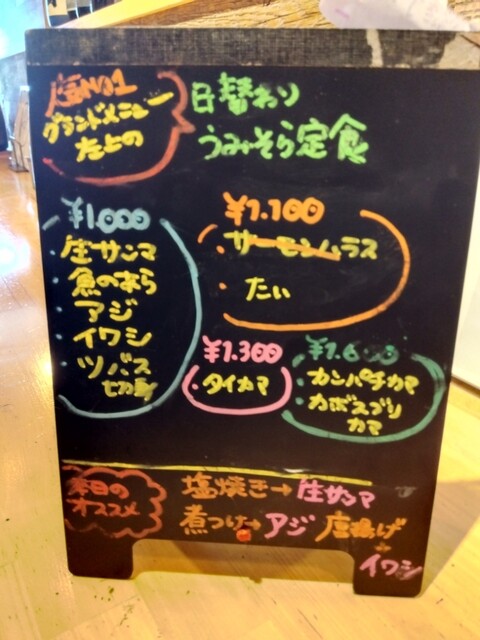 グランドメニュー
日替わり
うみそら定食
¥1.000
・生サンマ
・魚のあら
・アジ
・イワシ
・ツバス
切身
¥1.100
・サーモンハラス
・たい
¥1.300
・タイカマ
¥1.600
・カンパチカマ
・カボスブリ
カマ
本日の
オススメ
塩焼き→生サンマ
煮つけ→アジ 唐揚げ
→
イワシ